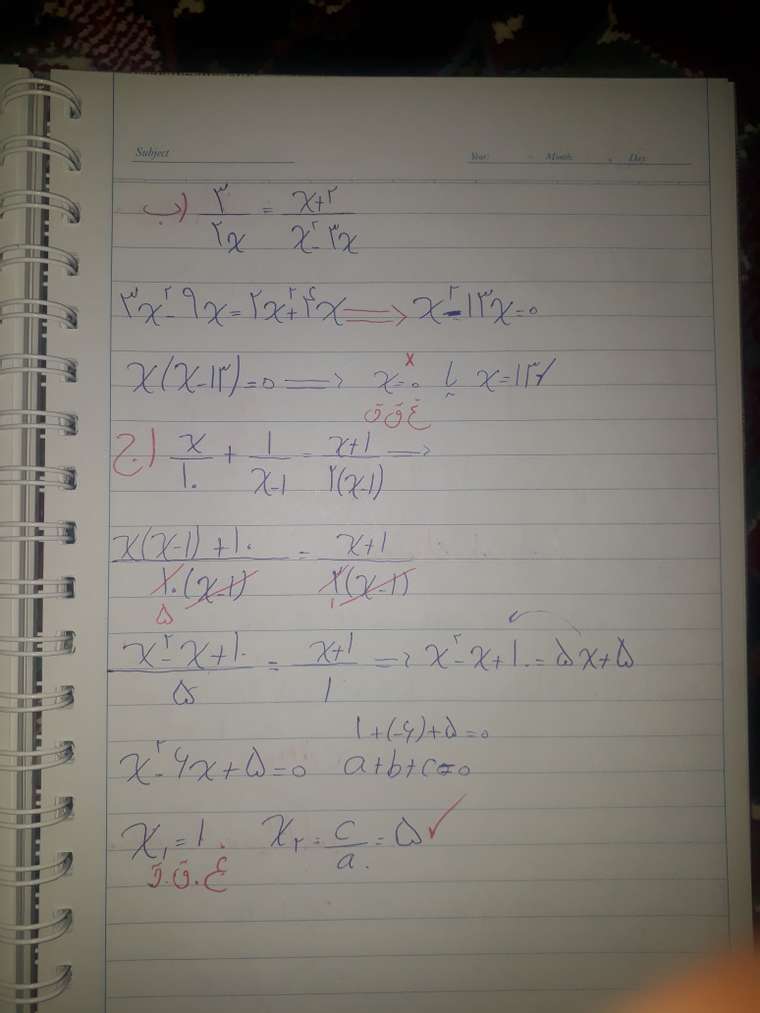 Subject
Year: Month: Day
ب) ۳/۲x = x+۲/x²-۳x
۳x²-۹x=۲x²+۴x ⟹ x²-۱۳x=۰
x(x-۱۳)=۰ ⟹ x=۰ یا x=۱۳ ✓
× غ ق ق
ج) x/۱۰ + ۱/x-۱ = x+۱/۲(x-۱) ⟶
x(x-۱)+۱۰/۱۰(x-۱) = x+۱/۲(x-۱)
۵ ۱
x²-x+۱۰/۵ = x+۱/۱ ⟹ x²-x+۱۰=۵x+۵
۱+(-۶)+۵=۰
x²-۶x+۵=۰ a+b+c=۰
x₁=۱ x₂=c/a=۵ ✓
غ.ق.ق